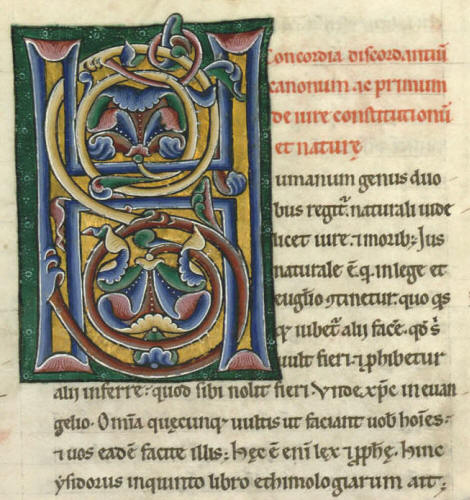 Concordia discordantiū
canonum ac primum
de iure constitutionū
et naturę
Humanum genus duo
bus regit᷑. naturali uide
licet iure. ⁊ morib; Ius
naturale ē. q. in lege et
euḡlio ꝯtinetur. quo q̄s
iubet᷑ alii facē. q̄ s̄
uult fieri. ⁊ ꝓhibetur
alii inferre. quod sibi nolit fieri. Vnde xp̄c in euan
gelio. Om̄ia quęcunq; uultis ut faciant uob hoīes.
⁊ uos eadē facite illis. hęc ē enī lex ⁊ ꝓphę. hinc
ysidorus in quinto libro ethimologiarum ait.